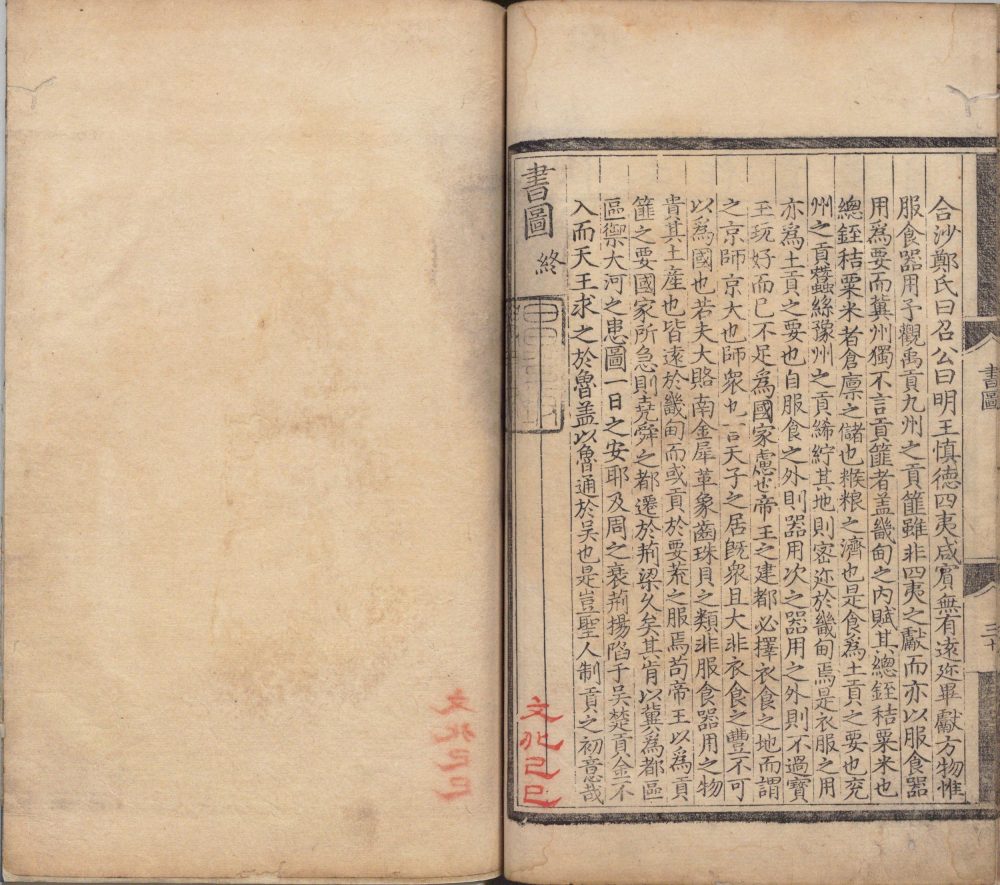 合沙鄭氏曰召公曰明王慎德四夷咸賓無有遠迩畢獻方物惟
服食器用予觀禹貢九州之貢篚雖非四夷之獻而亦以服食器
用爲要而冀州獨不言貢篚者盖畿甸之内賦其總銍秸粟米也
總銍秸粟米者倉廪之儲也糇粮之濟也是食爲土貢之要也兖
州之貢蠶絲豫州之貢絺紵其地則密迩於畿甸焉是衣服之用
亦爲土貢之要也自服食之外則器用次之器用之外則不過寳
玉玩好而已不足爲國家慮也帝王之建都必擇衣食之地而謂
之京師京大也師衆也言天子之居旣衆且大非衣食之豐不可
以爲國也若夫大賂南金犀革象齒珠貝之類非服食器用之物
貴其土産也皆遠於畿甸而或貢於要荒之服焉苟帝王以爲貢
篚之要國家所急則堯舜之都遷於荊梁久矣其肯以冀爲都區
區禦大河之患圖一日之安耶及周之衰荊揚陷于吴楚貢金不
入而天王求之於魯盖以魯通於吴也是豈聖人制貢之初意哉
書圖 終
文化己巳
書圖
三十